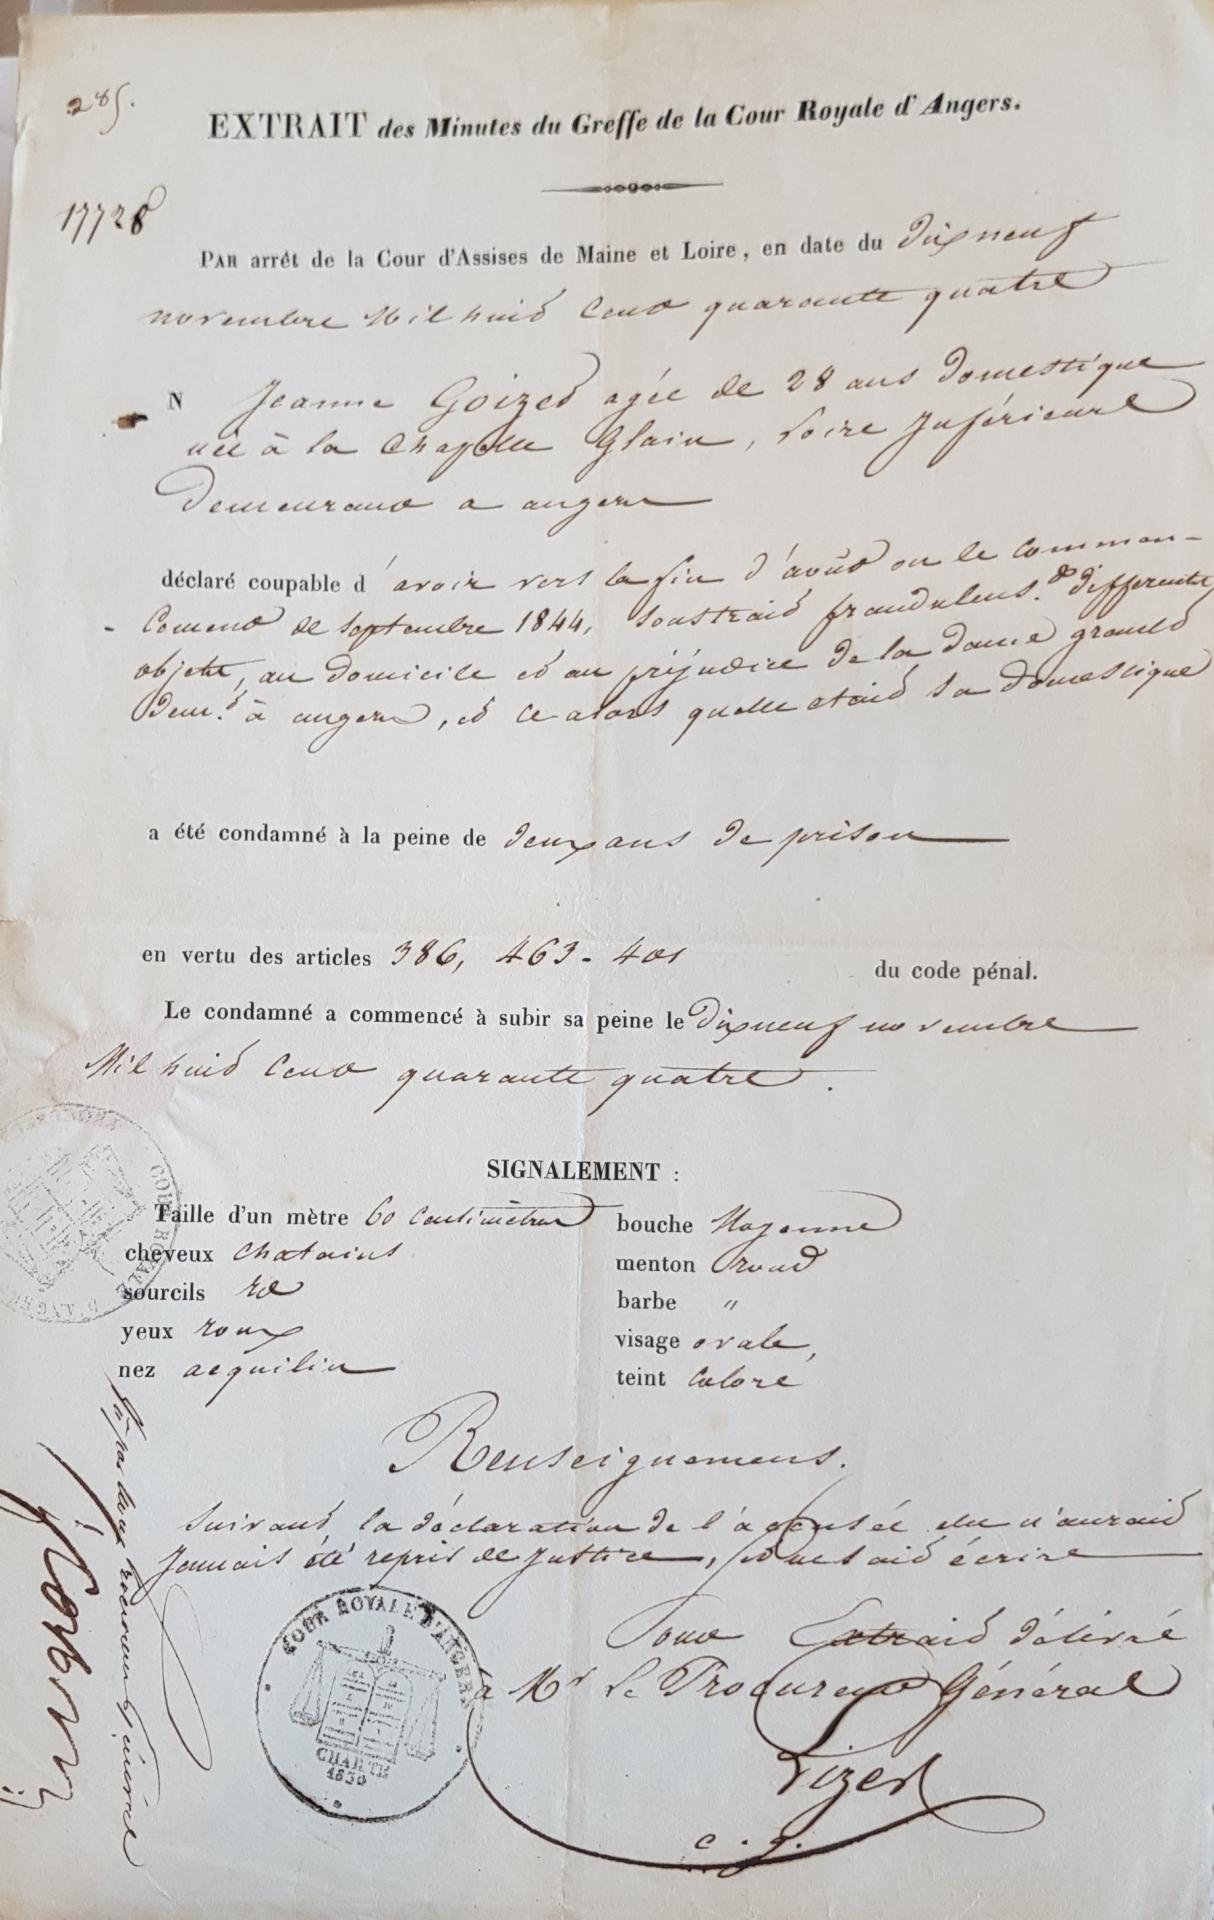 285.
EXTRAIT des Minutes du Greffe de la Cour Royale d'Angers.
17728
PAR arrêt de la Cour d'Assises de Maine et Loire, en date du dix neuf
novembre Mil huit cent quarante quatre
N Jeanne Goized agée de 28 ans domestique
née à la Chapelle Glain, Loire Inférieure
demeurant a angers
déclaré coupable d'avoir vers la fin d'août ou le commen-
-cement de septembre 1844, soustrait fraudulens.t differents
objets, au domicile et au préjudice de la dame
dem.t à angers, et ce alors quelle etait sa domestique
a été condamné à la peine de deux ans de prison
en vertu des articles 386, 463 - 401 du code pénal.
Le condamné a commencé à subir sa peine le dix neuf novembre
Mil huit cent quarante quatre.
SIGNALEMENT :
Taille d'un mètre 60 centimètres
cheveux chatains
sourcils id
yeux roux
nez acquilin
bouche Moyenne
menton rond
barbe "
visage ovale,
teint coloré
Renseignemens.
suivant la déclaration de l'accusée elle n'aurait
jamais été repris de justice, et ne sait écrire
Pour Extrait délivré
à Mr Le Procureur Général
c. g.
COUR ROYALE D'ANGERS
CHARTE
1830
COUR ROYALE D'ANGERS
Vu par nous Procureur Général